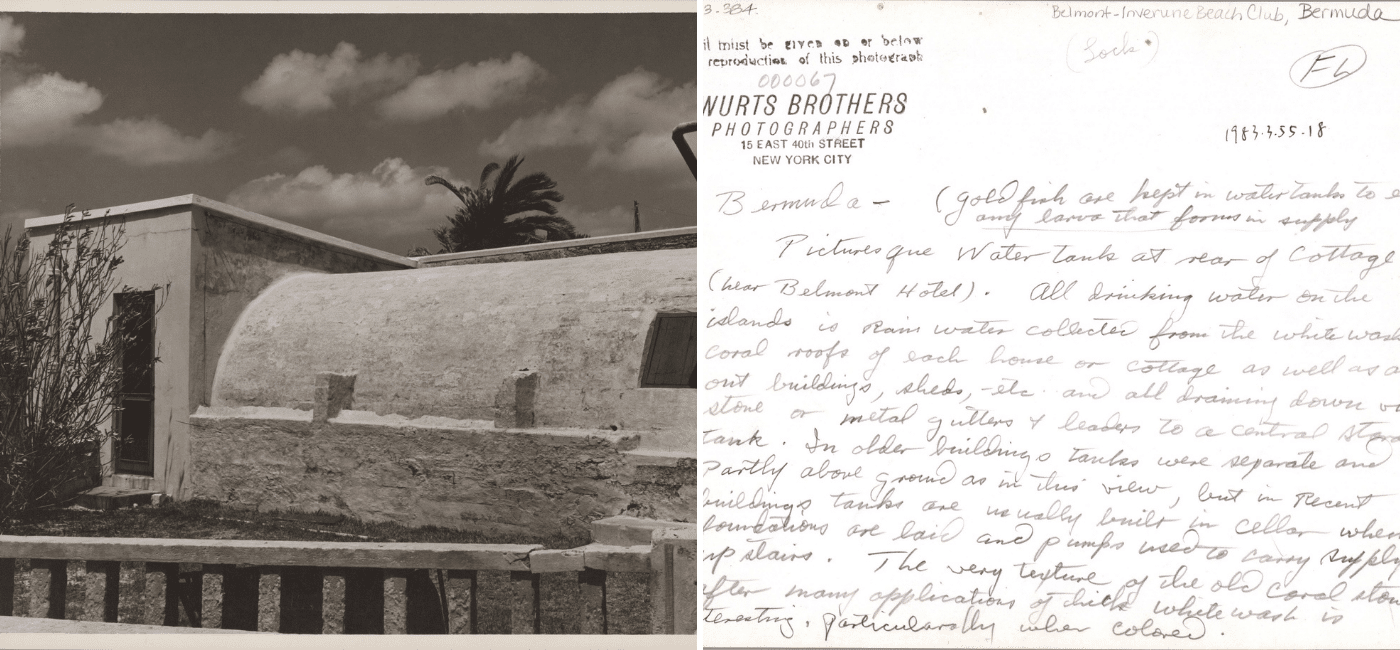 3-384.
Belmont-Inverurie Beach Club, Bermuda
it must be given on or below
reproduction of this photograph
(Lock.)
000067
WURTS BROTHERS
PHOTOGRAPHERS
15 EAST 40th STREET
NEW YORK CITY
1983.3.55-18
Bermuda - (gold fish are kept in water tanks to
any larva that forms in supply
Picturesque Water tank at rear of Cottage
(near Belmont Hotel). All drinking water on the
islands is rain water collected from the white wash
coral roofs of each house or cottage as well as
out buildings, sheds, etc. and all draining down
stone or metal gutters & leaders to a central
tank. In older buildings tanks were separate and
partly above ground as in this view, but in recent
buildings tanks are usually built in cellar when
foundations are laid and pumps used to carry supply
up stairs. The very texture of the old coral
after many applications of white wash is
particularally when colored.